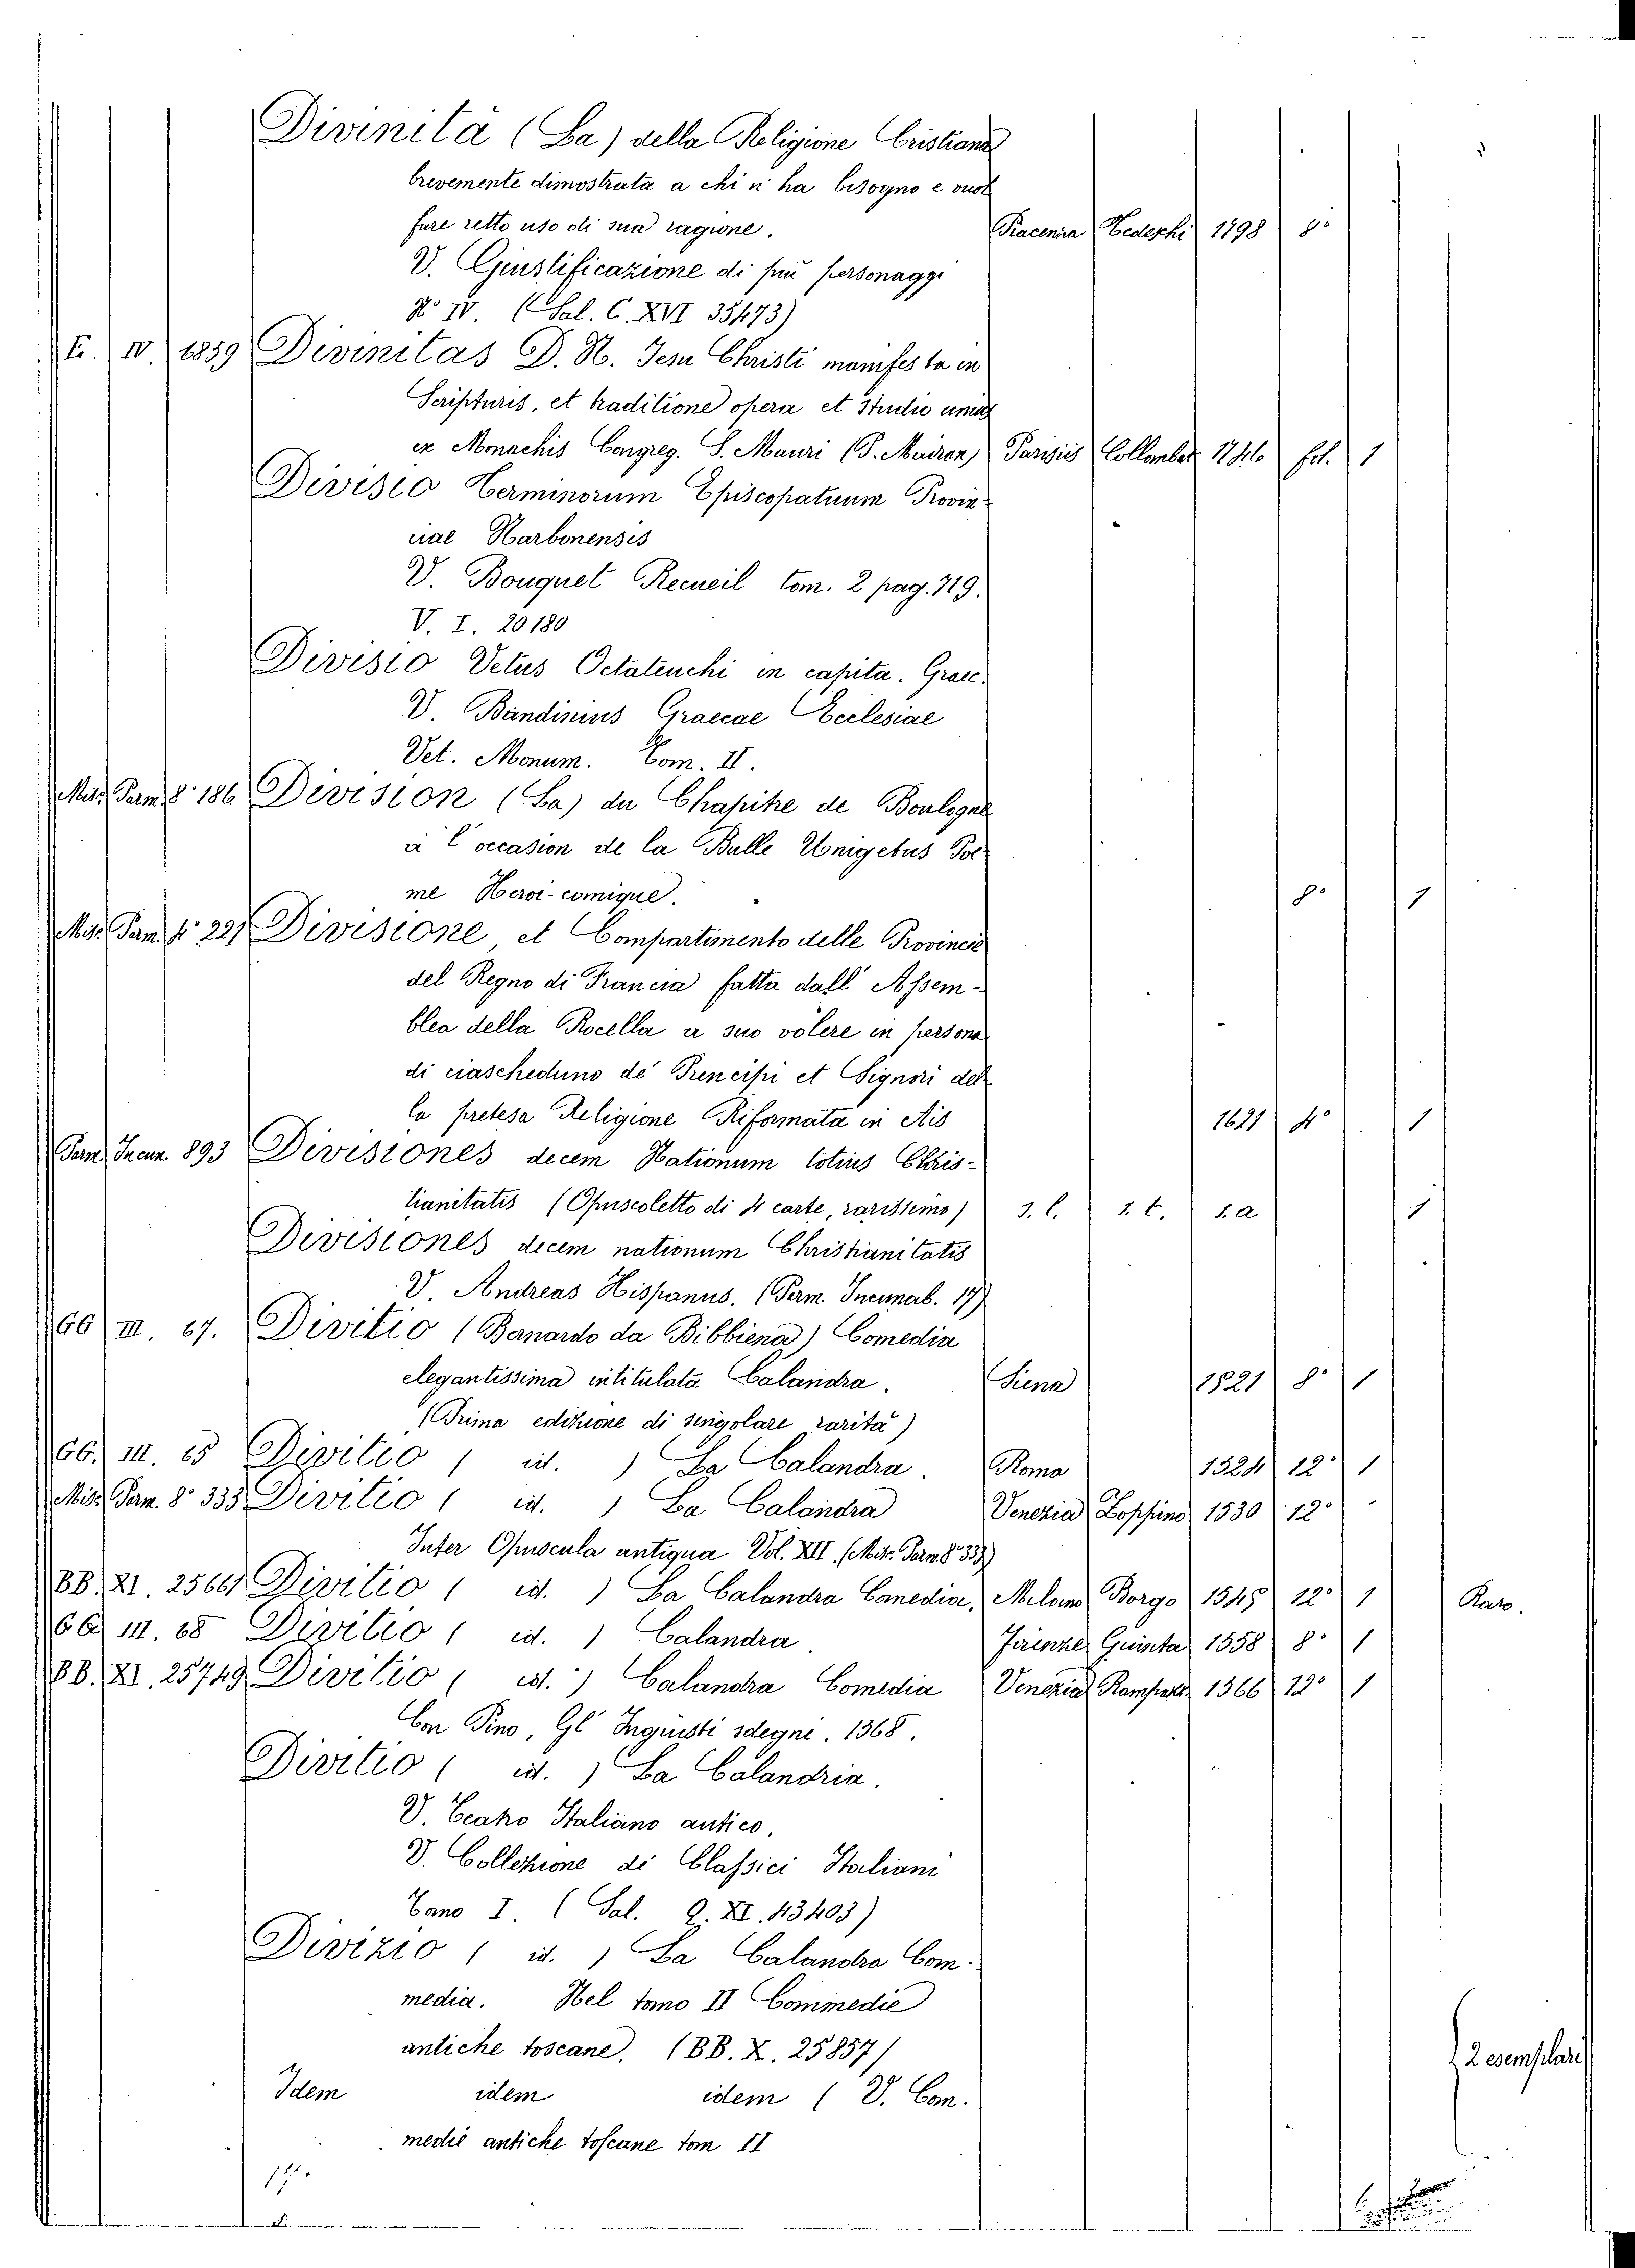 Divinità (La) della Religione Cristiana
brevemente dimostrata a chi n' ha bisogno e vuol
fare retto uso di sua ragione. Piacenza Tedeschi 1798 8°
V. Giustificazione di più personaggi
N° IV. (Sal. C. XVI 35473)
E. IV 1859 Divinitas D. N. Jesu Christi manifesta in
Scripturis, et traditione opera et studio unius
ex Monachis Congreg. S. Mauri (P. Mairan) Parisiis Collombat 1746 fol. 1
Divisio Terminorum Episcopatuum Provin
ciae Narbonensis
V. Bouquet Recueil tom. 2 pag. 719.
V. I. 20180
Divisio Vetus Octateuchi in capita. Graec.
V. Bandinius Graecae Ecclesiae
Vet. Monum. Tom. II.
Misc. Parm. 8° 186 Division (La) du Chapitre de Boulogne
à l'occasion de la Bulle Unigetus Poe
me Heroi-comique. 8° 1
Misc. Parm. 4° 221 Divisione et Compartimento delle Provincie
del Regno di Francia fatta dall' Assem-
blea della Rocella a suo volere in persona
di ciascheduno de' Prencipi et Signori del
la pretesa Religione Riformata in Ais 1621 4° 1
Parm. Incun. 893 Divisiones decem Nationum totius Chris-
tianitatis (Opuscoletto di 4 carte, rarissimo) s. l. s. t. s. a 1
Divisiones decem nationum Christianitatis
V. Andreas Hispanus. (Parm. Incunab. 17)
GG III. 67. Divitio (Bernardo da Bibbiena) Comedia
elegantissima intitulata Calandra. Siena 1521 8° 1
(Prima edizione di singolare rarità)
GG. III. 65 Divitio ( id. ) La Calandra. Roma 1524 12° 1
Misc. Parm. 8° 333 Divitio ( id. ) La Calandra Venezia Zoppino 1530 12°
Inter Opuscula antiqua Vol. XII. (Misc. Parm 8° 333)
BB. XI. 25661 Divitio ( id. ) La Calandra Comedia, Milano Borgo 1545 12° 1 Raro.
GG III. 68 Divitio ( id. ) Calandra. Firenze Giunta 1558 8° 1
BB. XI. 25749 Divitio ( id. ) Calandra Comedia Venezia Rampazz. 1566 12° 1
Con Pino, Gl' Ingiusti sdegni. 1568.
Divitio ( id. ) La Calandria.
V. Teatro Italiano antico.
V. Collezione di Classici Italiani
Tomo I. ( Sal. Q. XI. 43403)
Divizio ( id. ) La Calandra Com-
media. Nel tomo II Commedie
antiche toscane. (BB. X. 25857) 2 esemplari
Idem idem idem ( V. Com.
medie antiche toscane tom II